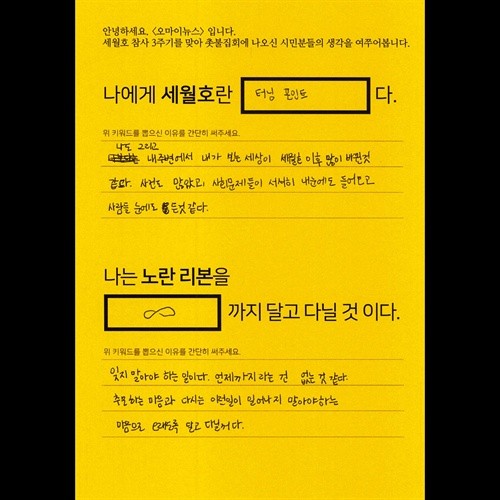 안녕하세요, <오마이뉴스> 입니다.
세월호 참사 3주기를 맞아 촛불집회에 나오신 시민분들의 생각을 여쭈어봅니다.
나에게 세월호란 터닝 포인트 다.
위 키워드를 뽑으신 이유를 간단히 써주세요.
나도 그리고
내주변에서 내가 보는 세상이 세월호 이후 많이 바뀐것
같다. 사건도 많았고, 사회문제들이 서서히 내눈에도 들어오고
사람들 눈에도 든것 같다.
나는 노란 리본을
∞ 까지 달고 다닐 것 이다.
위 키워드를 뽑으신 이유를 간단히 써주세요.
잊지 말아야 하는 일이다. 언제까지라는 건 없는 것 같다.
추모하는 마음과 다시는 이런일이 일어나지 말아야하는
마음으로 오래도록 달고 다닐거다.